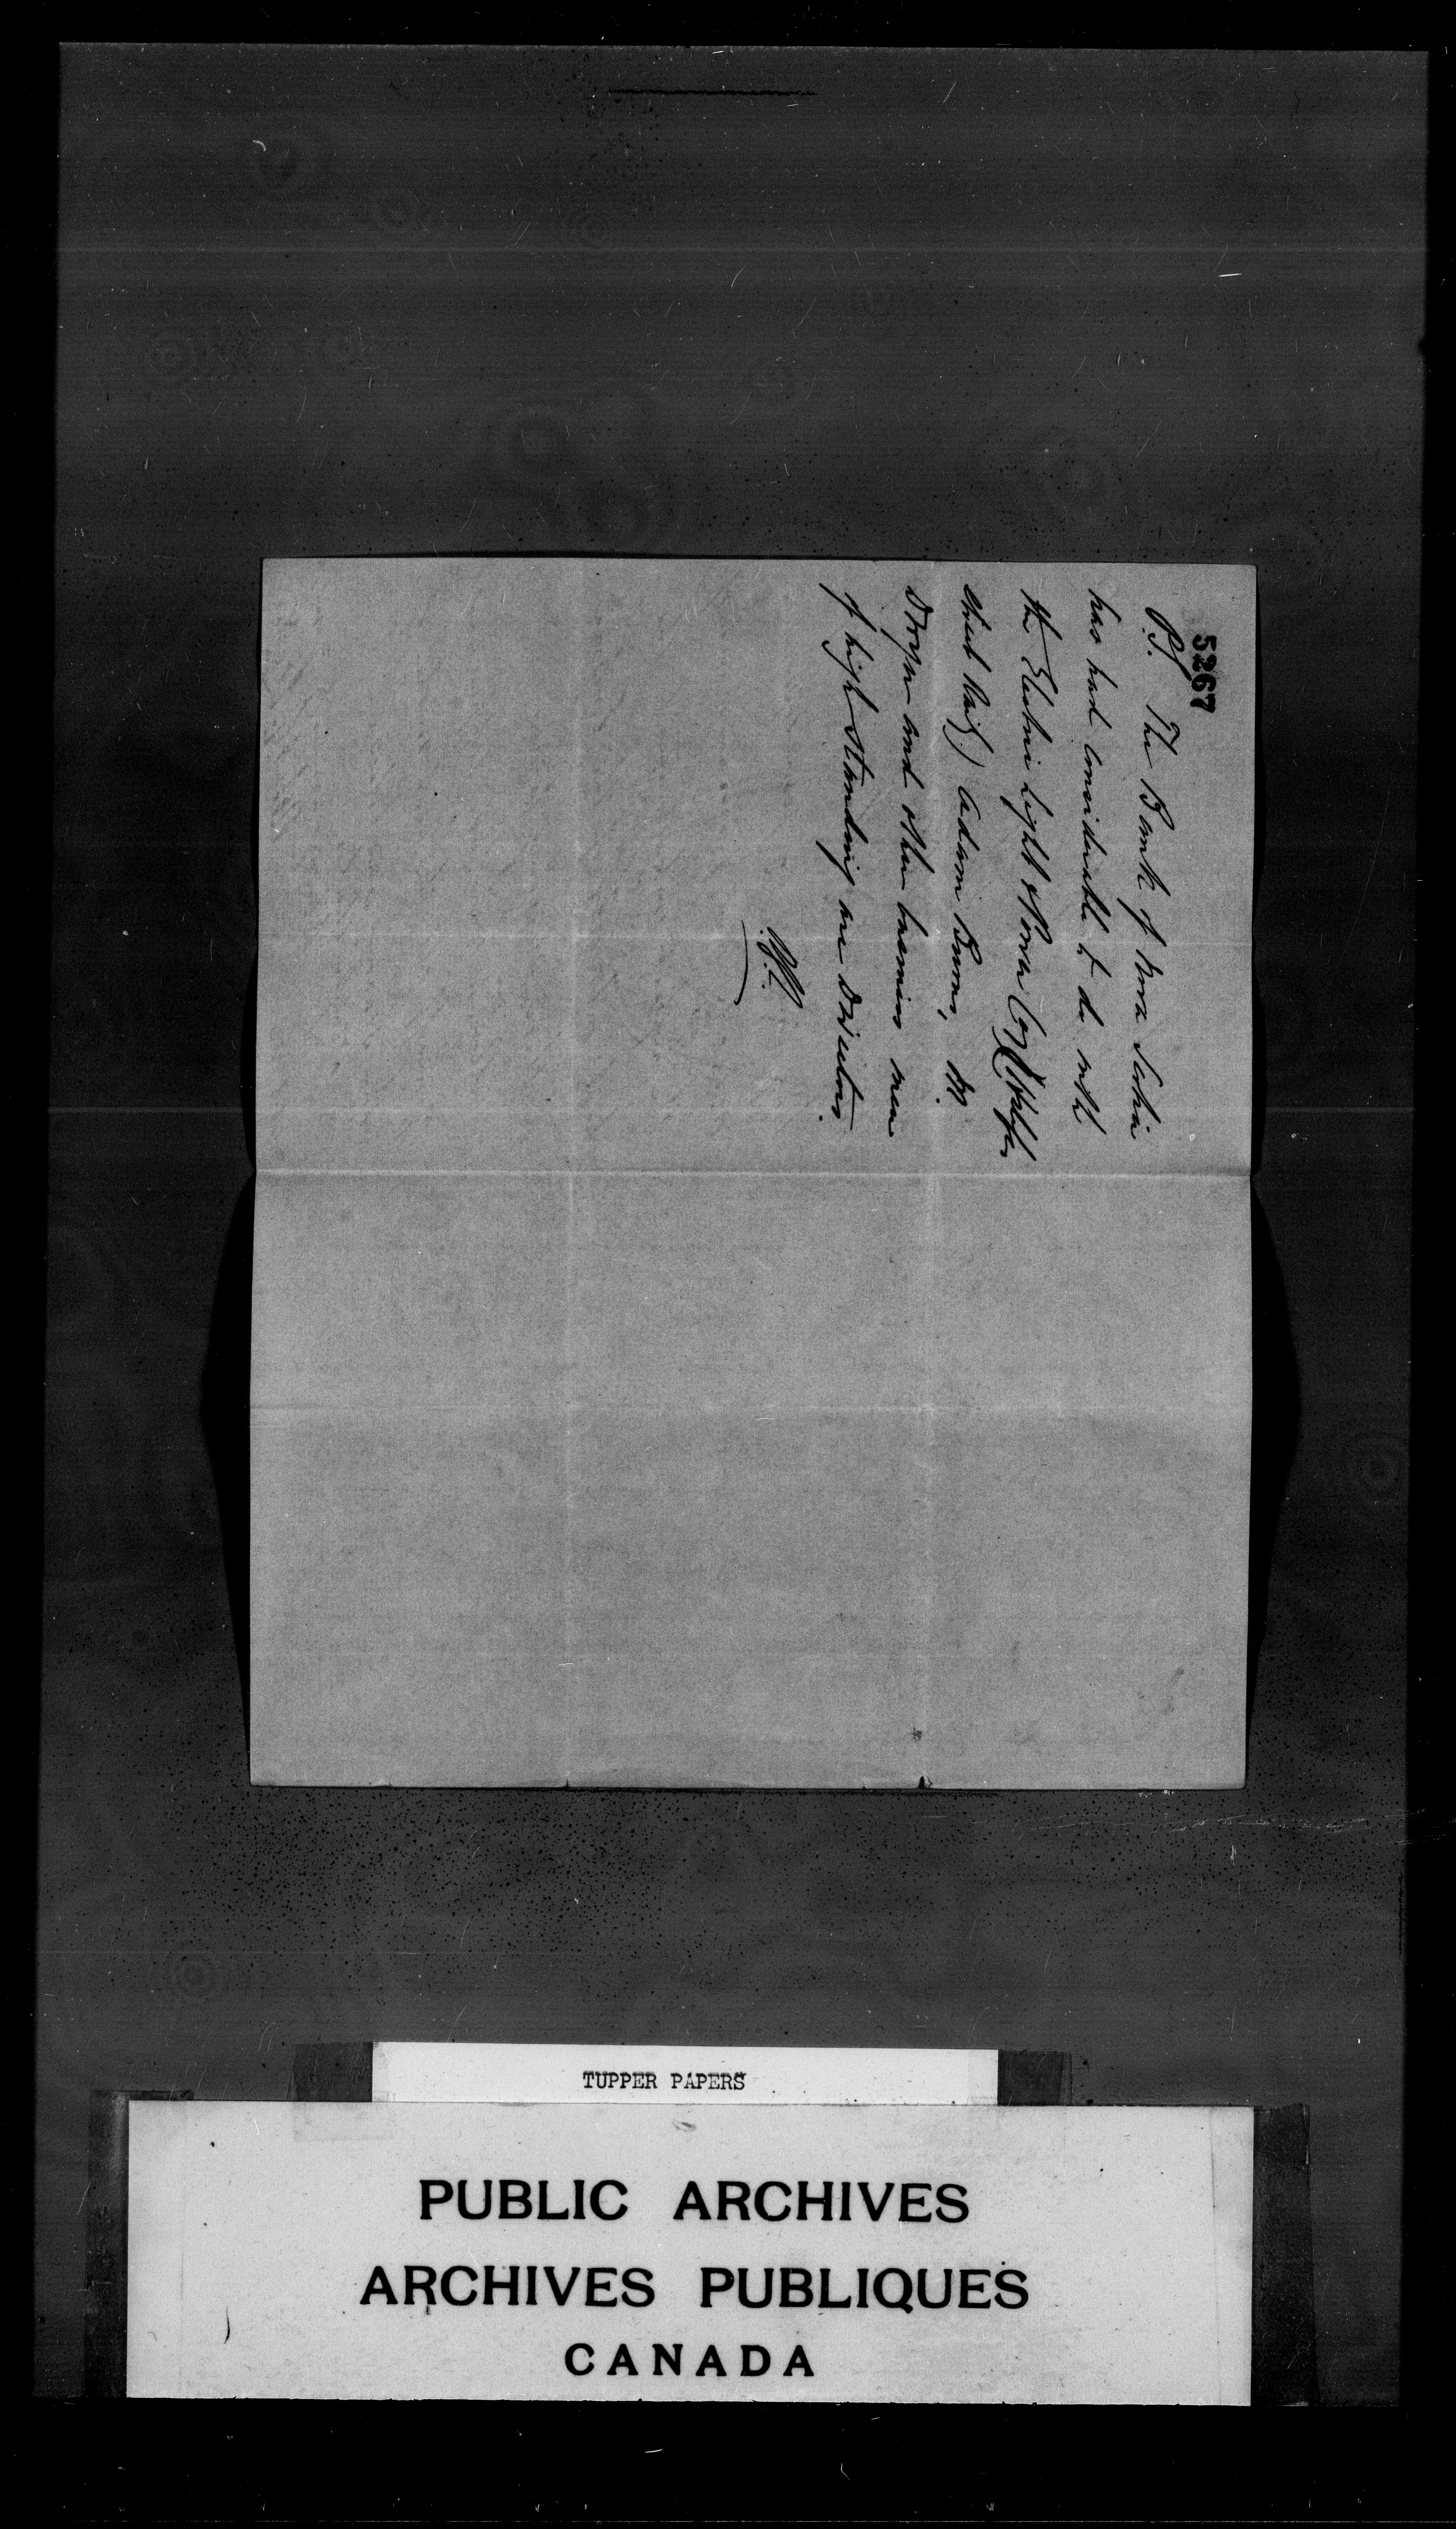 5267
P.S. The Bank of Nova Scotia
has had considerable to do with
the Electric Light & Power Coy (Halifax
Street Rail)) Adam Burns, W.
and other business men
of high standing are Directors.
TUPPER PAPERS
PUBLIC ARCHIVES
ARCHIVES PUBLIQUES
CANADA